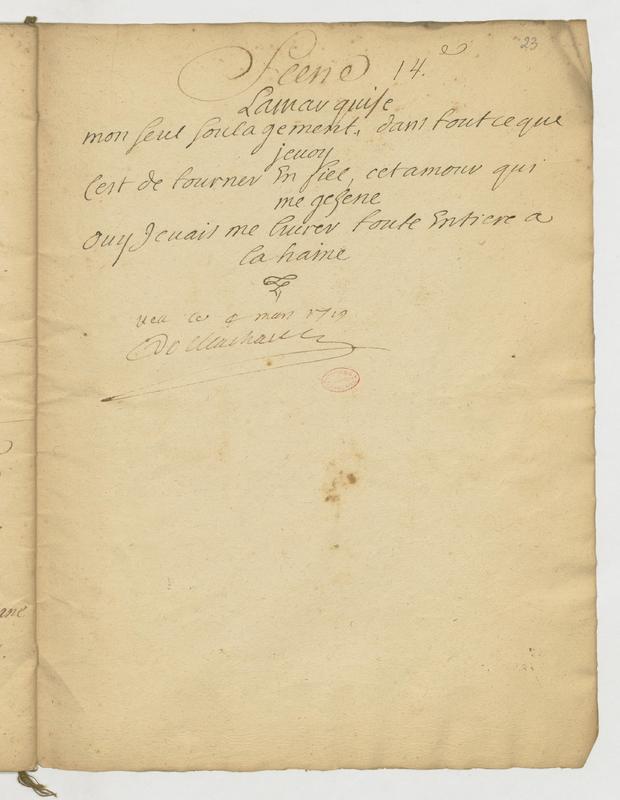 23
Scene 14.e
Lamarquise
mon seul soulagement, dans tout ce que
jevoy
Cest de tourner En fiel, cetamour qui
me gesene
ouy Jevais me livrer toute Entiere a
la haine
veu ce 4 mars 1719
De Machault
ane